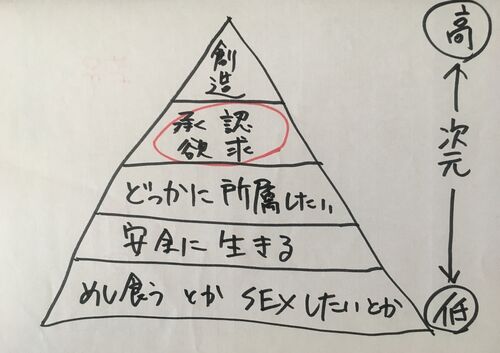 創
造
承認
欲求
どっかに所属したい
安全に生きる
めし食うとかSEXしたいとか
高
次元
低